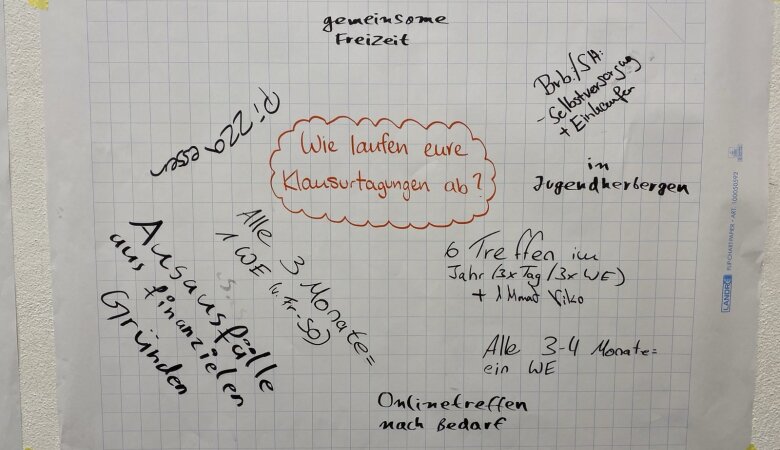 gemeinsome
Freizeit
Brb./SH:
- Selbstversorgung
+ Einkaufen
Pizza essen
Wie laufen eure
Klausurtagungen ab?
in
Jugendherbergen
Alle 3 Monate=
1 WE (v. Fr-SO)
6 Treffen im
Jahr (3x Tag/3x WE)
+ 1 Monat Viko
Ausausfälle
aus finanzielen
Gründen
Alle 3-4 Monate=
ein WE
Onlinetreffen
nach Bedarf
LANDRÉ FLIPCHARTPAPIER • ART. 100050592